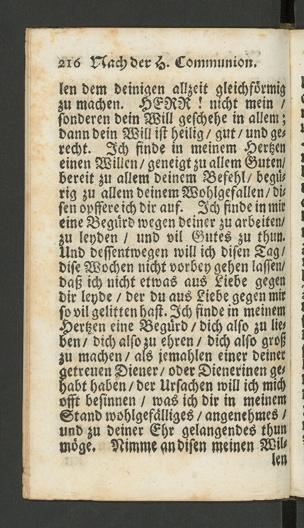 216 Nach der H. Communion.
len dem deinigen allzeit gleichförmig
zu machen. HERR ! nicht mein /
sonderen dein Will geschehe in allem ;
dann dein Will ist heilig / gut / und ge-
recht. Ich finde in meinem Hertzen
einen Willen / geneigt zu allem Guten /
bereit zu allem deinem Befehl / begü-
rig zu allem deinem Wohlgefallen / di-
sen opffere ich dir auf. Ich finde in mir
eine Begürd wegen deiner zu arbeiten /
zu leyden / und vil Gutes zu thun.
Und dessentwegen will ich disen Tag /
dise Wochen nicht vorbey gehen lassen /
daß ich nicht etwas aus Liebe gegen
dir leyde / der du aus Liebe gegen mir
so vil gelitten hast. Ich finde in meinem
Hertzen eine Begürd / dich also zu lie-
ben / dich also zu ehren / dich also groß
zu machen / als jemahlen einer deiner
getreuen Diener / oder Dienerinen ge-
habt haben / der Ursachen will ich mich
offt besinnen / was ich dir in meinem
Stand wohlgefälliges / angenehmes /
und zu deiner Ehr gelangendes thun
möge. Nimme an disen meinen Wil-
len